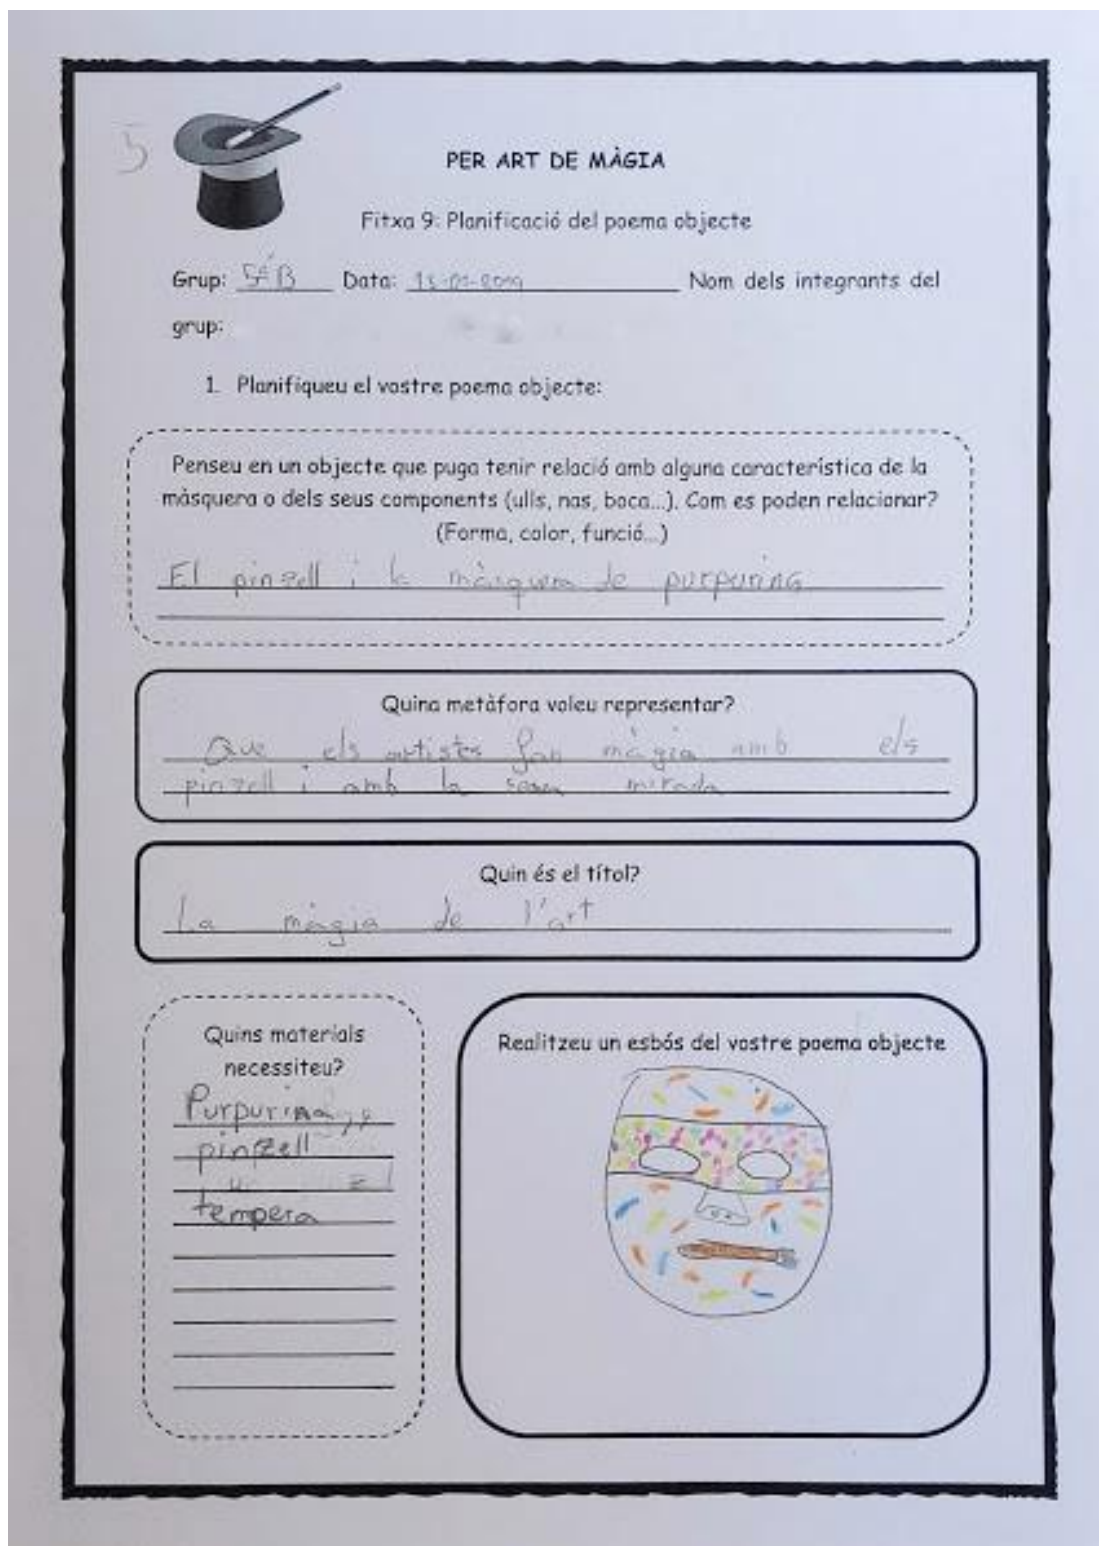 5
PER ART DE MÀGIA
Fitxa 9: Planificació del poema objecte
Grup: 5éB Data: Nom dels integrants del
grup:
1. Planifiqueu el vostre poema objecte:
Penseu en un objecte que puga tenir relació amb alguna característica de la
màsquera o dels seus components (ulls, nas, boca...). Com es poden relacionar?
(Forma, color, funció...)
El pinzell i la màsquera de purpurina
Quina metàfora voleu representar?
Que els artistes fan màgia amb els
pinzell i amb la seua mirada
Quin és el títol?
La màgia de l'art
Quins materials
necessiteu?
Purpurina,
pinzell
tempera
Realitzeu un esbós del vostre poema objecte